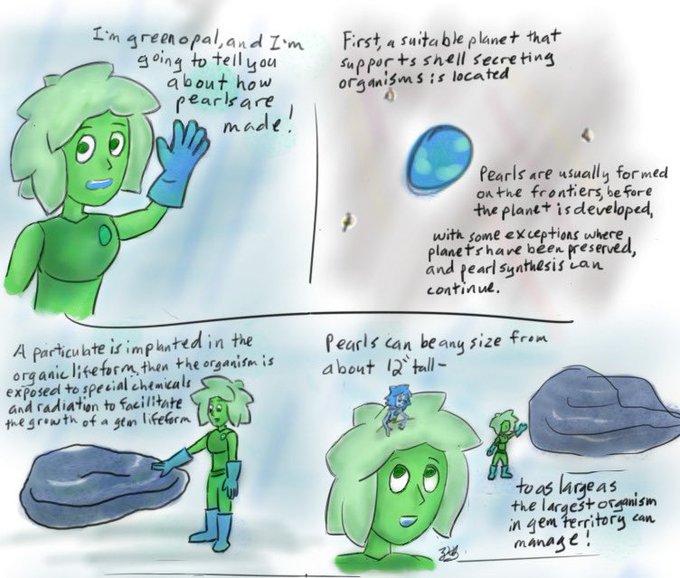 I'm green opal, and I'm
going to tell you
about how
pearls are
made!
First, a suitable planet that
supports shell secreting
organisms is located
Pearls are usually formed
on the frontiers, before
the planet is developed,
with some exceptions where
planets have been preserved,
and pearl synthesis can
continue.
A particulate is implanted in the
organic lifeform, then the organism is
exposed to special chemicals
and radiation to facilitate
the growth of a gem lifeform
Pearls can be any size from
about 12" tall-
to as large as
the largest organism
in gem territory can
manage!